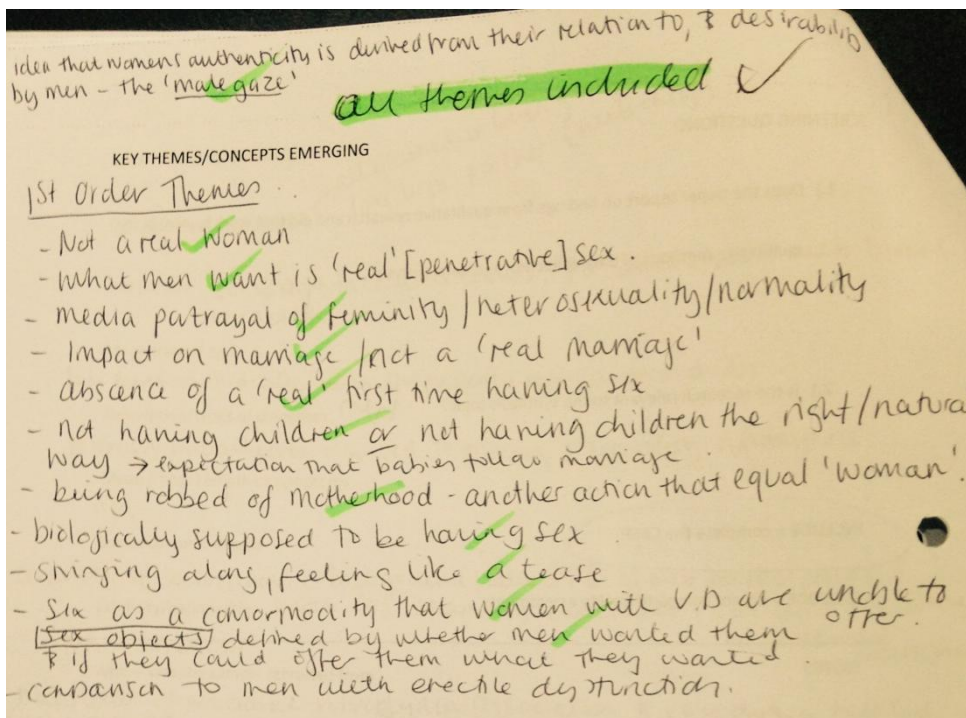 idea that womens authenticity is derived from their relation to, & desirability
by men - the 'male gaze'
all themes included ✓
KEY THEMES/CONCEPTS EMERGING
1st Order Themes
- Not a real woman
- What men want is 'real' [penetrative] sex.
- media portrayal of feminity / heterosexuality / normality
- Impact on marriage / not a 'real marriage'
- absence of a 'real' first time having sex
- not having children or not having children the right/natura
way → expectation that babies follow marriage.
- being robbed of motherhood - another action that equal 'woman'.
- biologically supposed to be having sex.
- stringing along, feeling like a tease
- Sex as a commodity that women with V.D are unable to
offer.
sex objects defined by whether men wanted them
& if they could offer them what they wanted.
- comparison to men with erectile dysfunction.